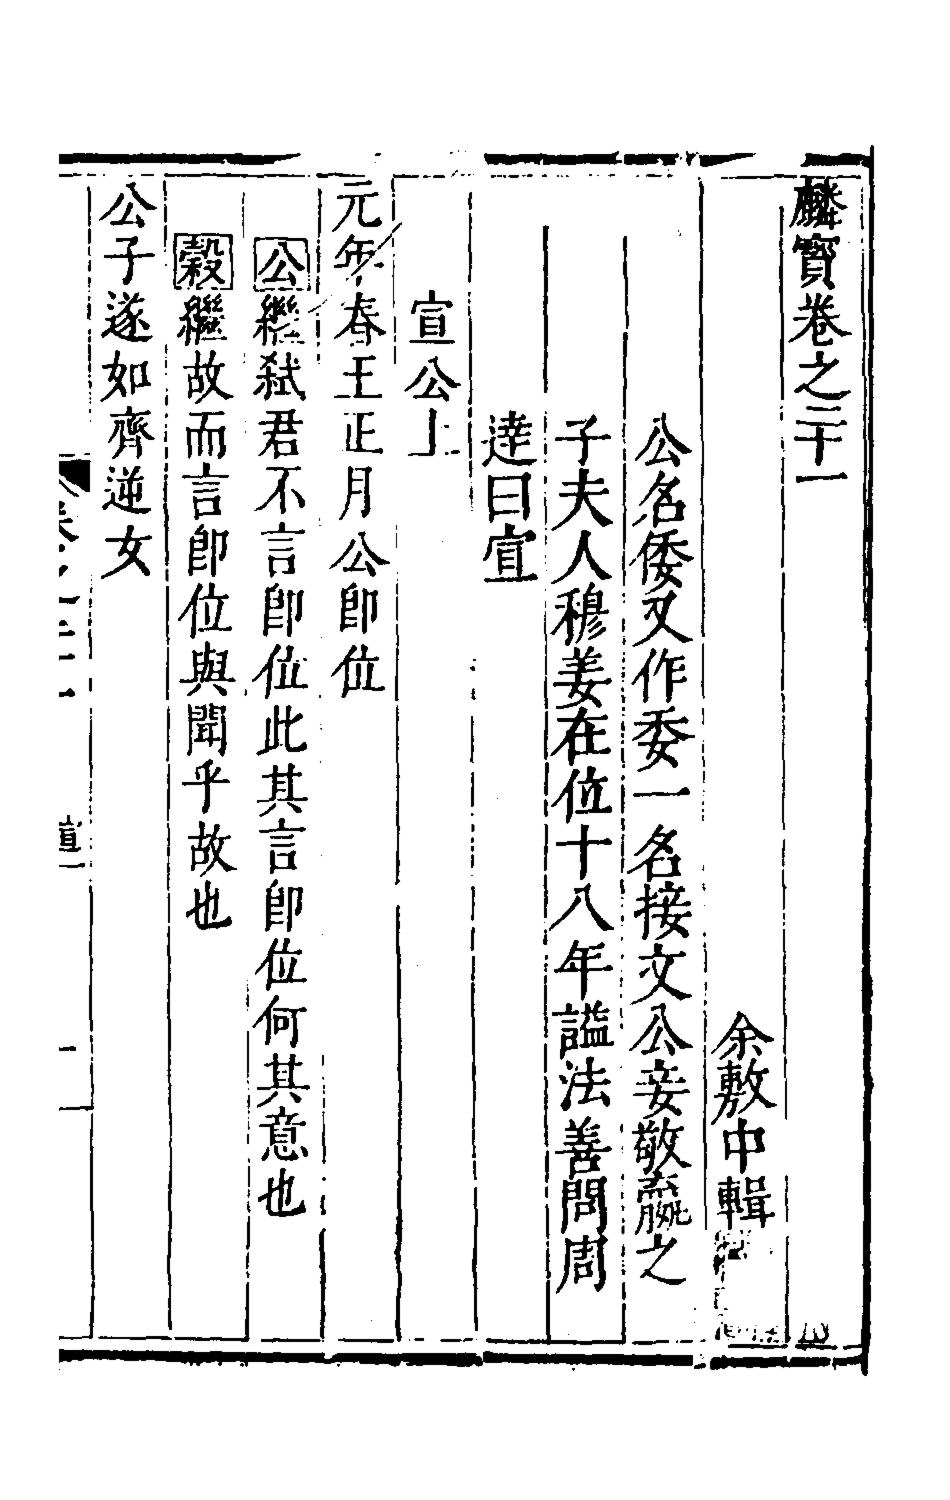 麟寳卷之二十一
余敷中輯
公名倭又作委一名接文公妾敬嬴之
子夫人穆姜在位十八年諡法善問周
達曰宣
宣公上
元年春王正月公卽位
公繼弑君不言卽位此其言卽位何其意也
穀繼故而言卽位與聞乎故也
公子遂如齊逆女